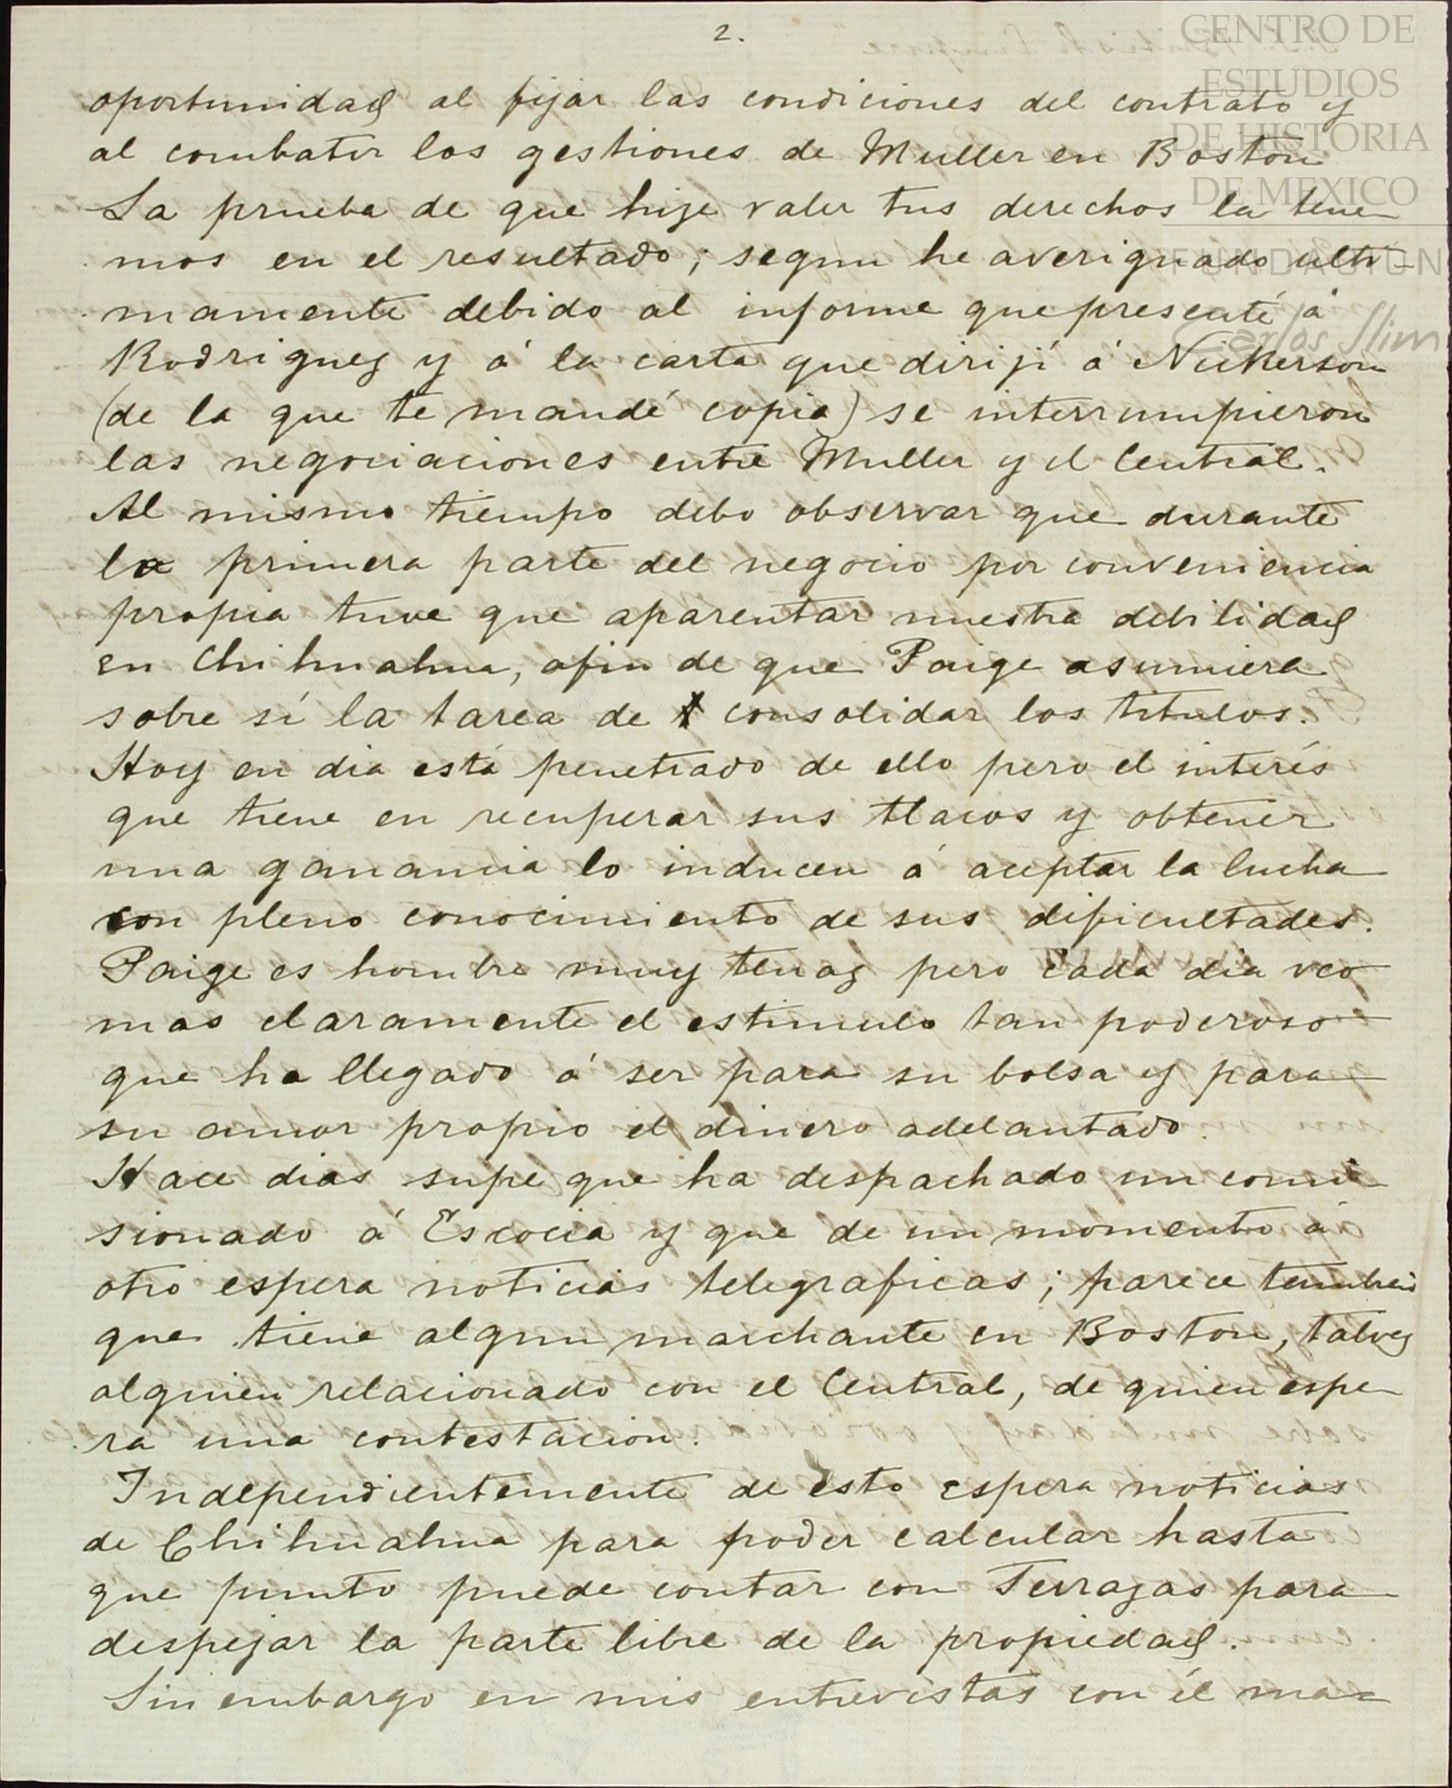 2.
oportunidad al fijar las condiciones del contrato y
al combatir las gestiones de Muller en Boston
La prueba de que hize valer tus derechos la tene-
mos en el resultado; segun he averiguado ulti-
mamente debido al informe que presenté á
Rodriguez y á la carta que dirijí á Nickerson
(de la que te mandé copia) se interrumpieron
las negociaciones entre Muller y el Central.
Al mismo tiempo debo observar que durante
la primera parte del negocio por conveniencia
propia tuve que aparentar nuestra debilidad
en Chihuahua, afin de que Paige asumiera
sobre sí la tarea de consolidar los titulos.
Hoy en dia está penetrado de ello pero el interés
que tiene en recuperar sus tlacos y obtener
una ganancia lo inducen á aceptar la lucha
con pleno conocimiento de sus dificultades.
Paige es hombre muy tenaz pero cada dia veo
mas claramente el estimulo tan poderoso
que ha llegado á ser para su bolsa y para
su amor propio el dinero adelantado.
Hace dias supe que ha despachado un comi-
sionado á Escocia y que de un momento á
otro espera noticias telegraficas; parece tambien
que tiene algun marchante en Boston, talvez
alguien relacionado con el Central, de quien espe-
ra una contestacion.
Independientemente de esto espera noticias
de Chihuahua para poder calcular hasta
que punto puede contar con Terrazas para
despejar la parte libre de la propiedad.
Sin embargo en mis entrevistas con él ma=
CENTRO DE
ESTUDIOS
DE HISTORIA
DE MEXICO
FUNDACION
Carlos Slim